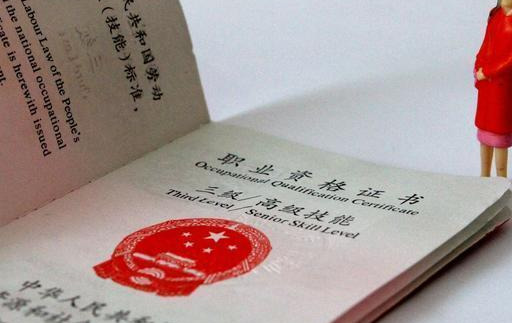 民共和国劳动
（技能）标准，
Labour Law of the People's
the national occupational
icate is herewith issued
职业资格证书
Occupational Qualification Certificate
三级/高级技能
Third Level / Senior Skill Level
中华人民共和